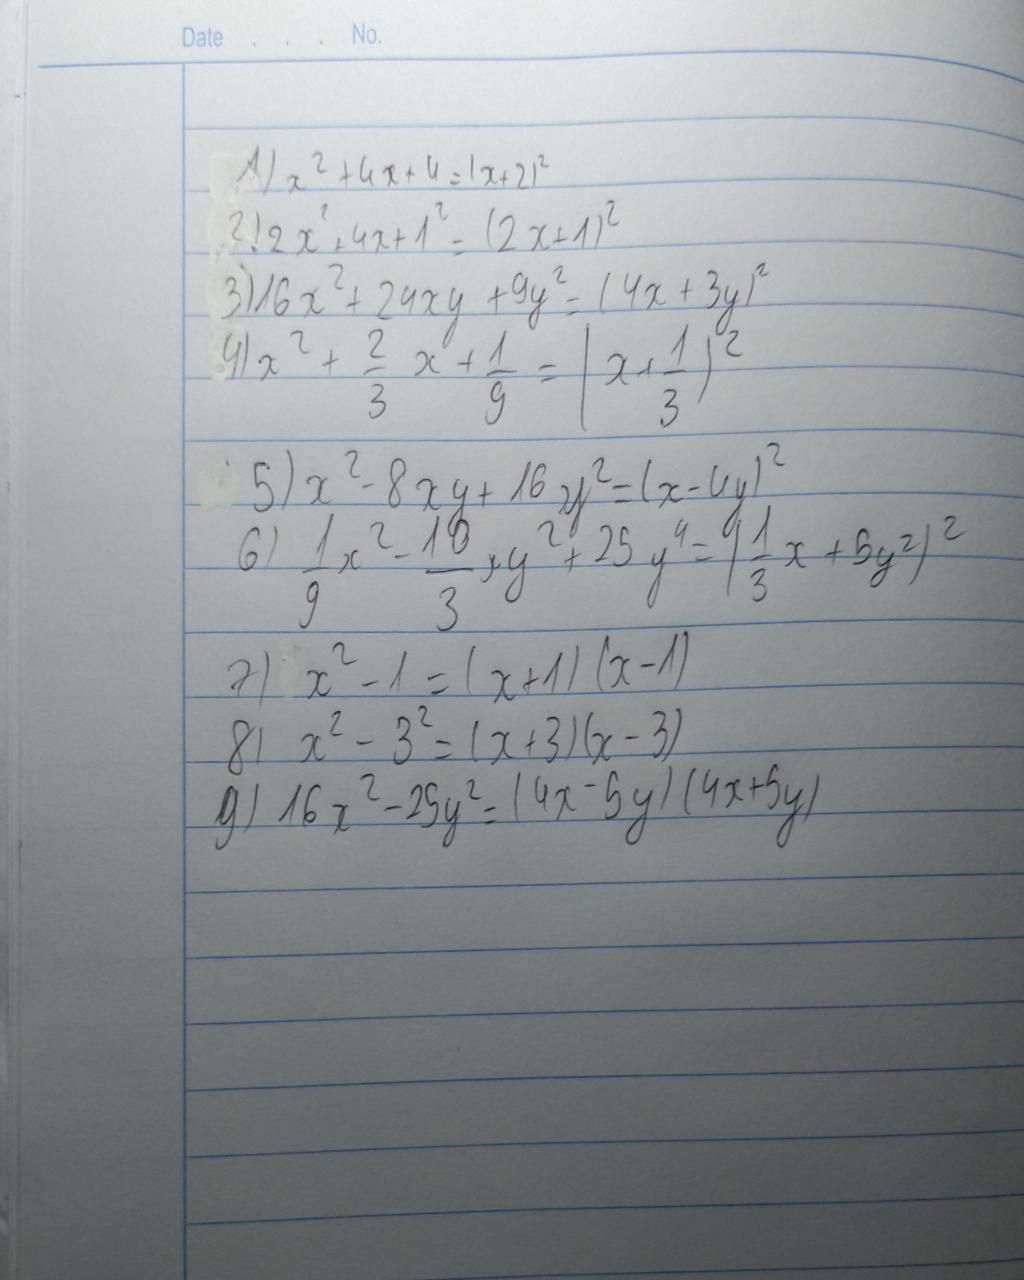 Date . . . No.
1) x² + 4x + 4 = (x+2)²
2) 2x² + 4x + 1² = (2x+1)²
3) 16x² + 24xy + 9y² = (4x + 3y)²
4) x² + 2/3 x + 1/9 = (x + 1/3)²
5) x² - 8xy + 16y² = (x - 4y)²
6) 1/9 x² - 10/3 xy² + 25y⁴ = (1/3 x + 5y²)²
7) x² - 1 = (x+1)(x-1)
8) x² - 3² = (x+3)(x-3)
9) 16x² - 25y² = (4x - 5y)(4x+5y)